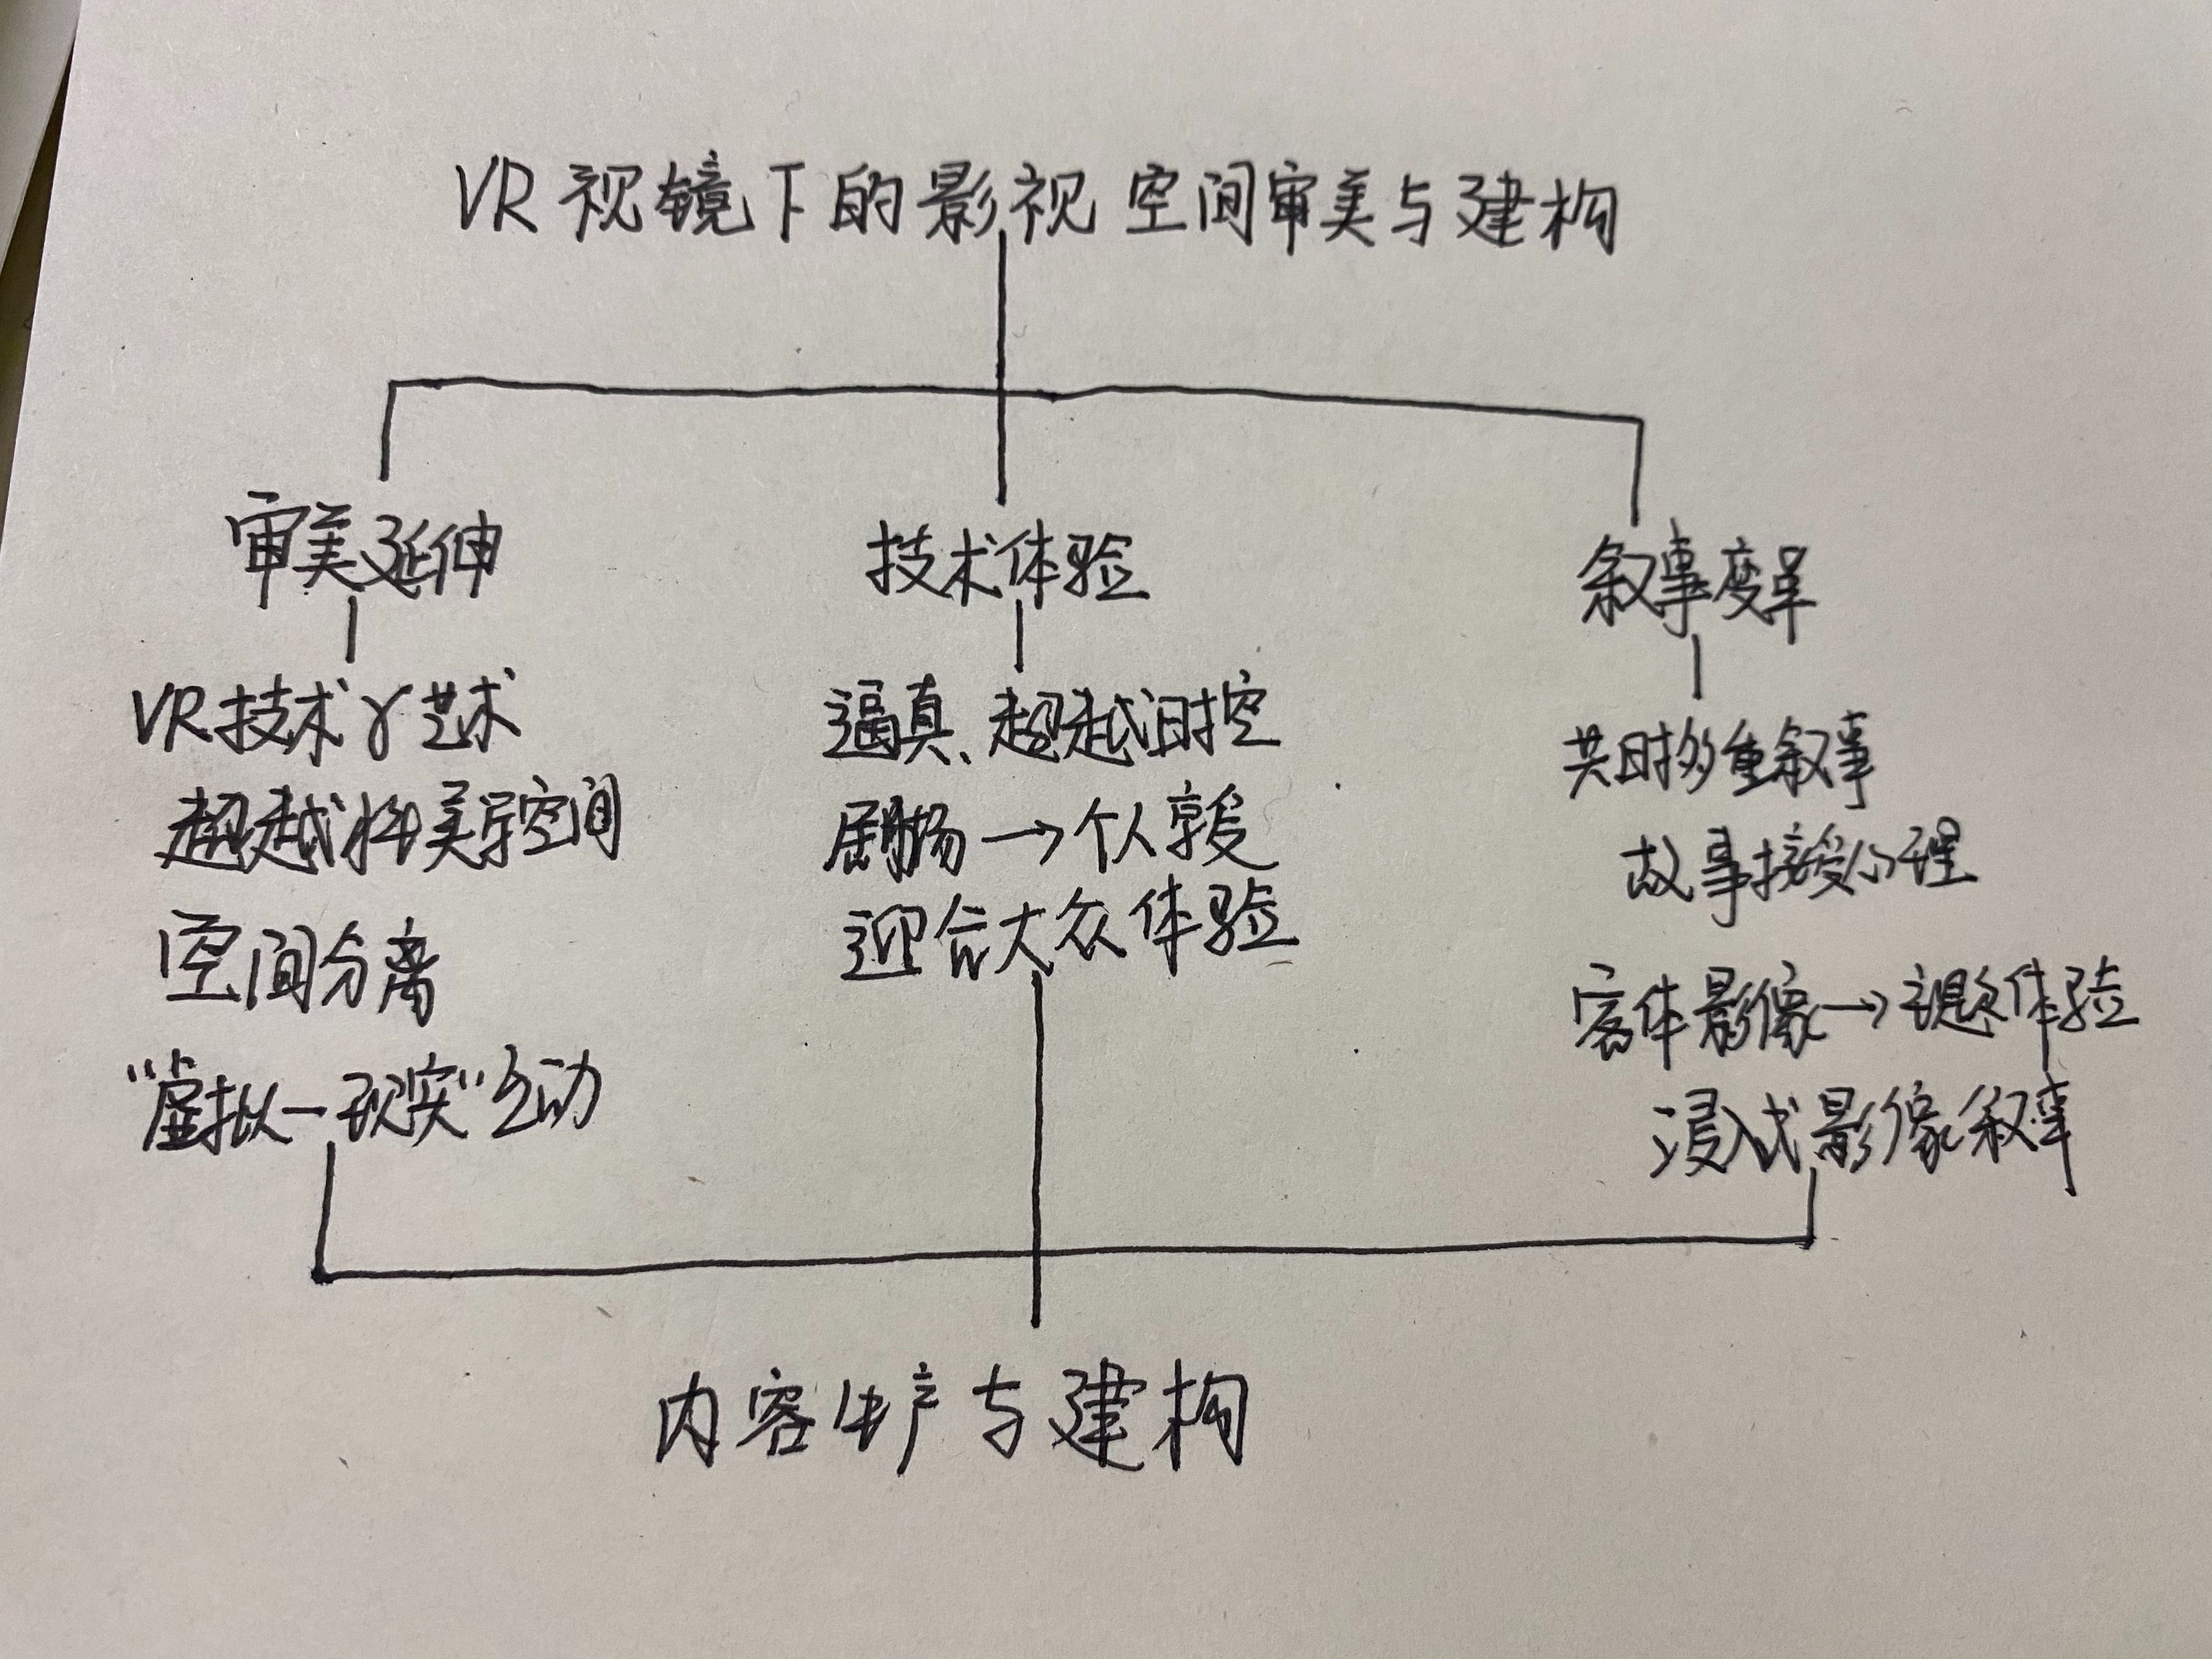 VR视镜下的影视空间审美与建构
审美延伸
VR技术与艺术
超越性美学空间
空间分离
“虚拟—现实”互动
技术体验
逼真、超越时空
剧场→个人享受
迎合大众体验
叙事变革
共时多重叙事
故事接受心理
客体影像→主题体验
浸入式影像叙事
内容生产与建构